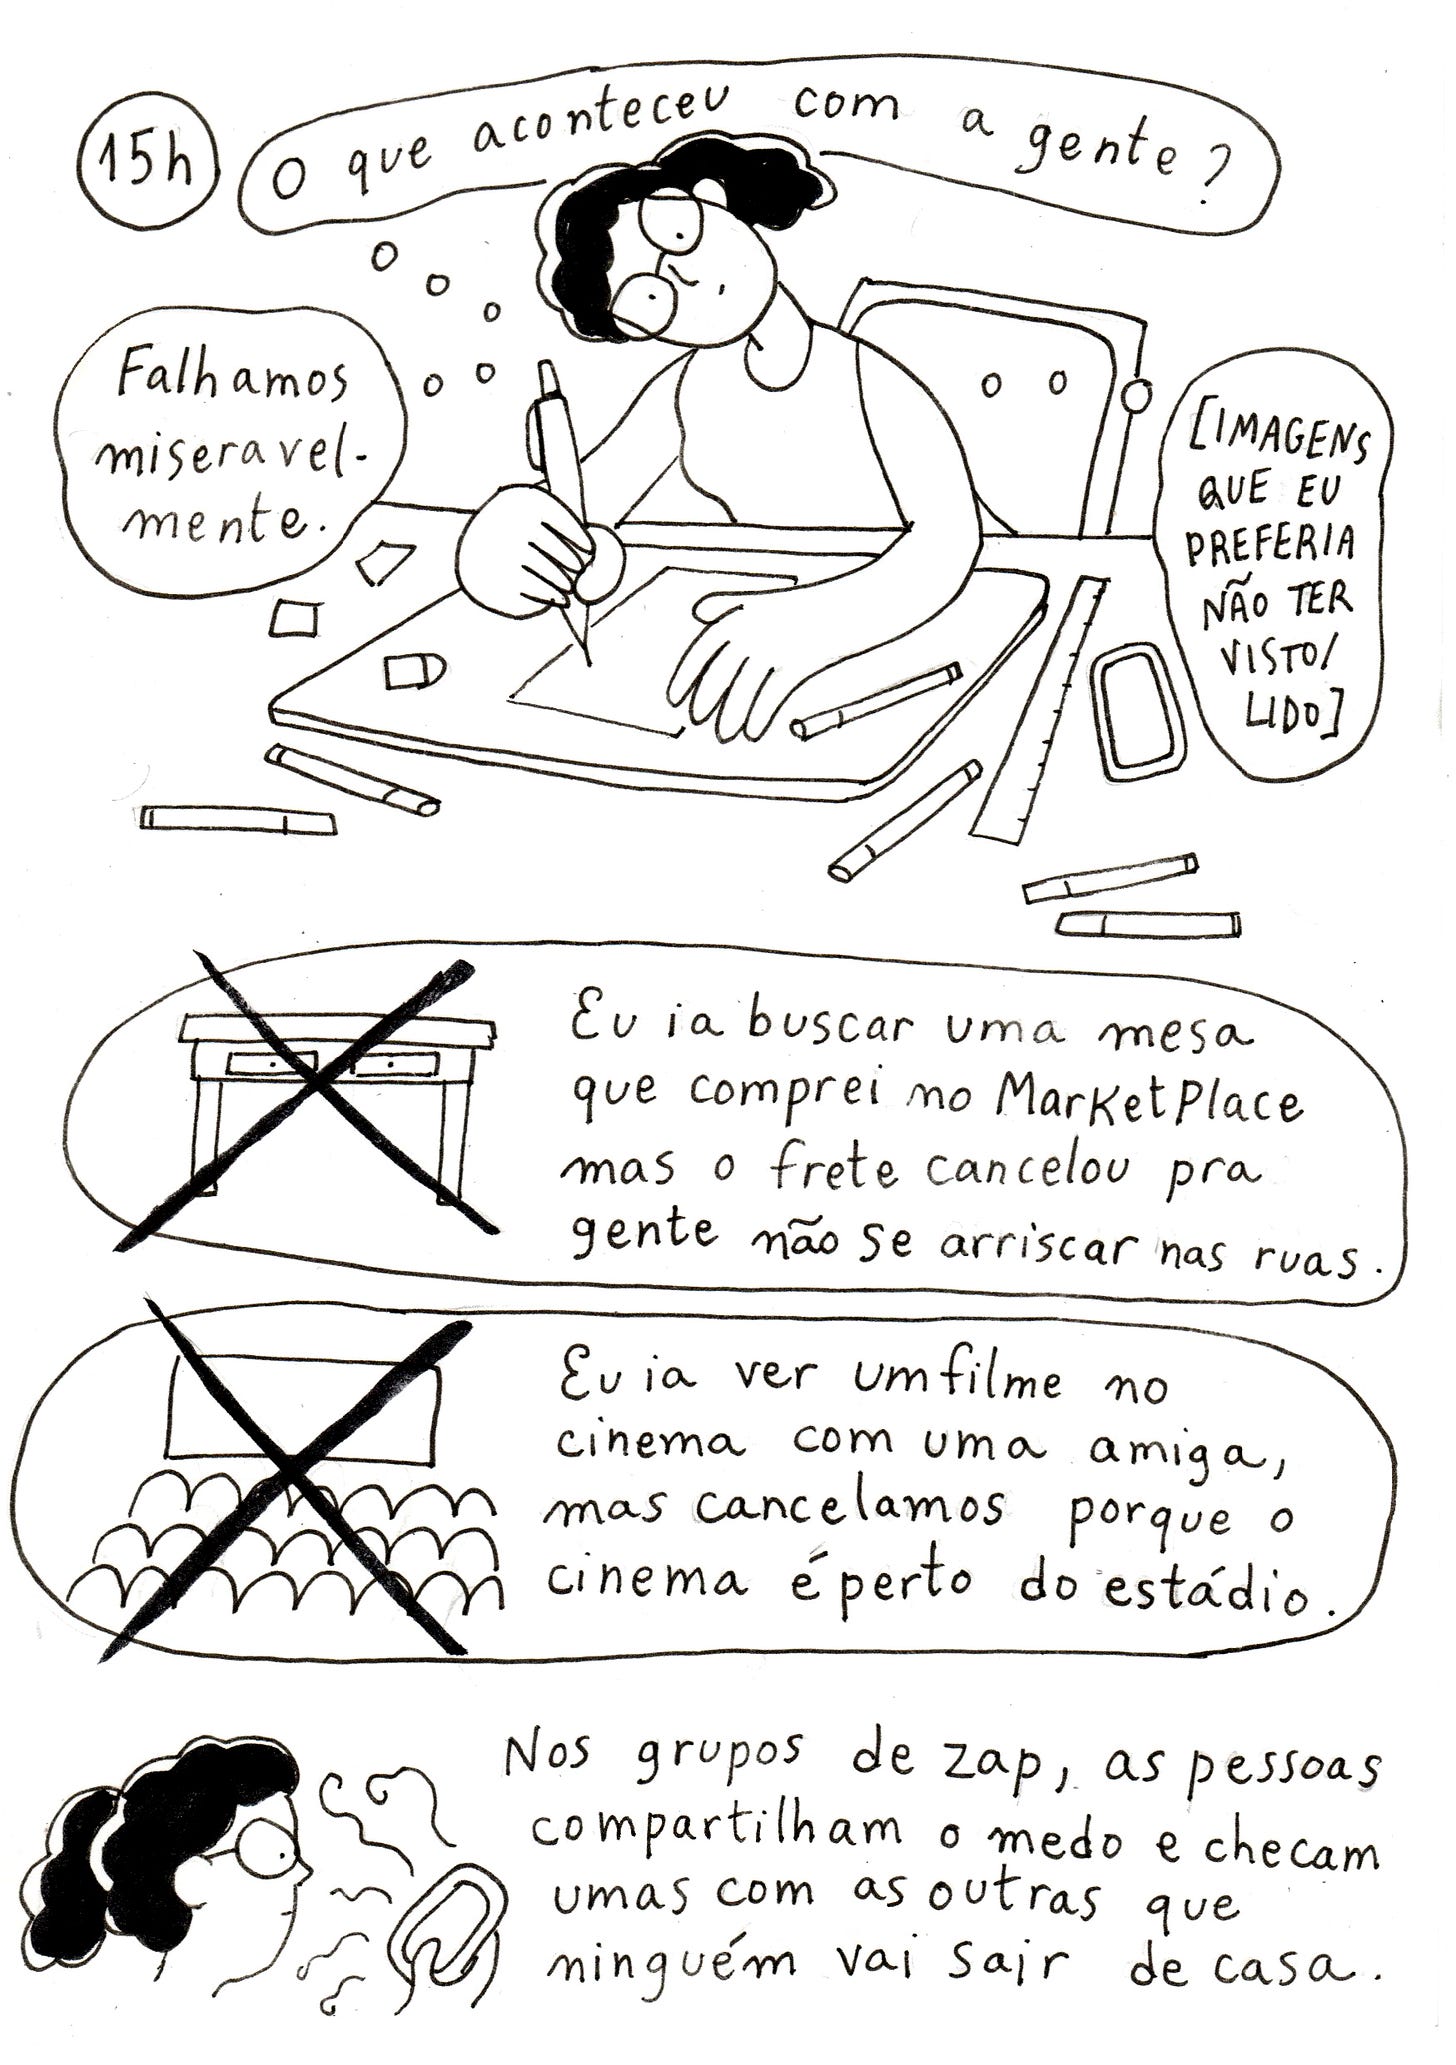 15h
O que aconteceu com a gente?
Falhamos
miseravel-
mente.
[IMAGENS
QUE EU
PREFERIA
NÃO TER
VISTO/
LIDO]
Eu ia buscar uma mesa
que comprei no MarketPlace
mas o frete cancelou pra
gente não se arriscar nas ruas.
Eu ia ver um filme no
cinema com uma amiga,
mas cancelamos porque o
cinema é perto do estádio.
Nos grupos de zap, as pessoas
compartilham o medo e checam
umas com as outras que
ninguém vai sair de casa.